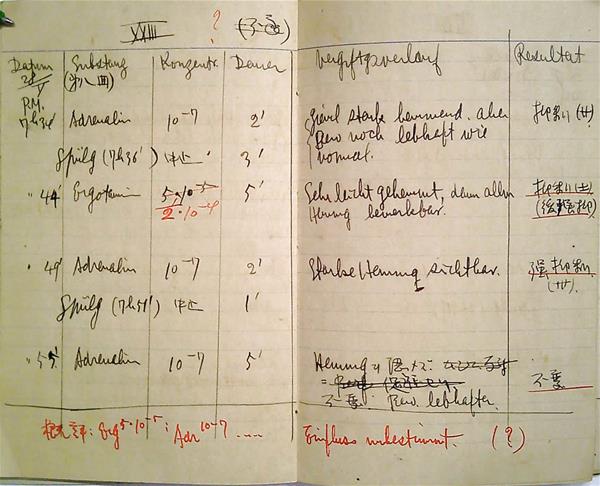 XXIII ? (不变)
Datum Substanz Konzentr. Dauer Vergiftgsverlauf Resultat
28/V (第八回)
P.M.
7h34' Adrenalin 10⁻⁷ 2' stark hemmend. aber 抑制 (卅)
Bew noch lebhaft wie
normal.
Spülg (7h36') 中止 3'
" 44' Ergotamin 5·10⁻⁵ 5' Sehr leicht gehemmt, dann allm 抑制 (±)
2·10⁻⁴ Hemng bemerkbar.
" 49' Adrenalin 10⁻⁷ 2' Starke Hemmng sichtbar. 强抑制
(卅).
Spülg (7h51') 中止 1'
" 55' Adrenalin 10⁻⁷ 5' Hemung
不变: Bew. lebhafter. 不变
概評: Erg 5·10⁻⁵; Adr 10⁻⁷ .... Einfluss unbestimmt. (?)